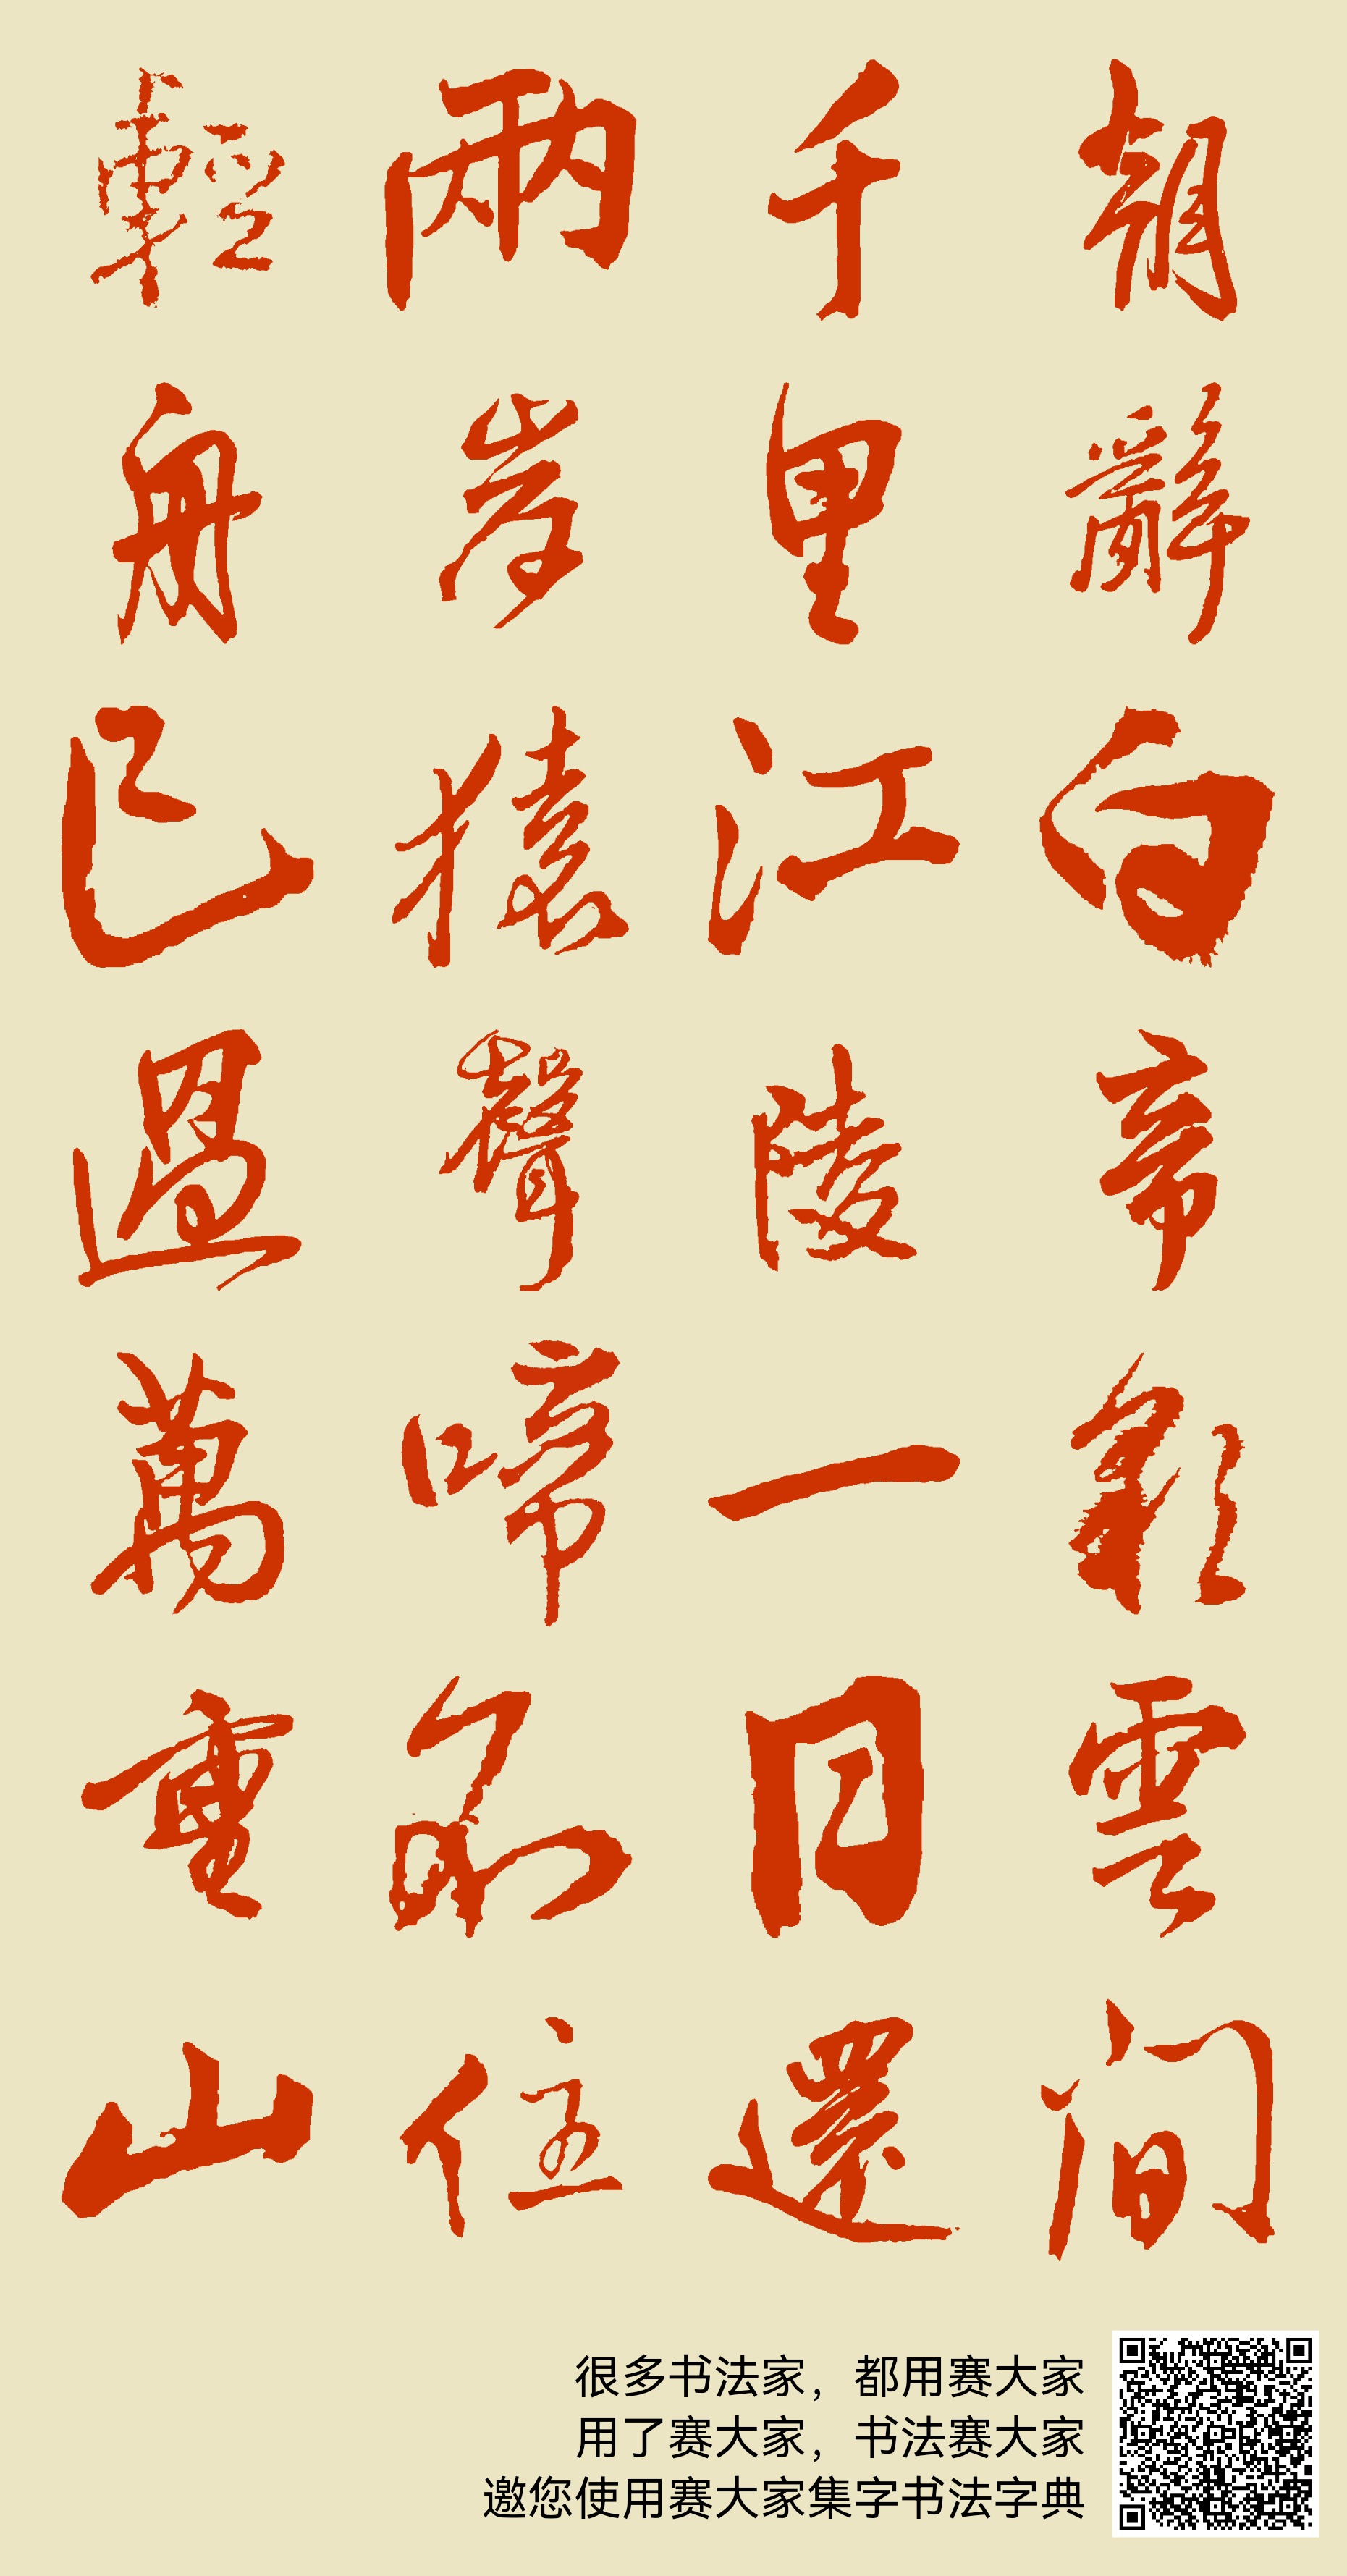 朝辭白帝彩雲間
千里江陵一日還
兩岸猿聲啼不住
輕舟已過萬重山
很多书法家，都用赛大家
用了赛大家，书法赛大家
邀您使用赛大家集字书法字典